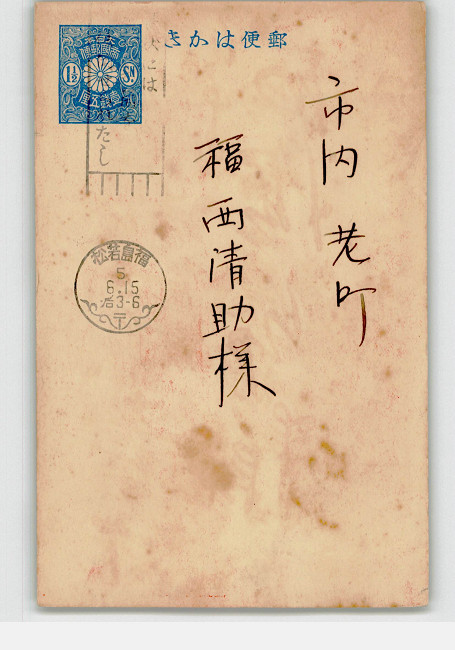 郵便はかき
大日本
帝國郵便
1½ Sn.
壹銭五厘
こは
たし
市内 老町
福西清助様
福島若松
5
6.15
后3-6
〒